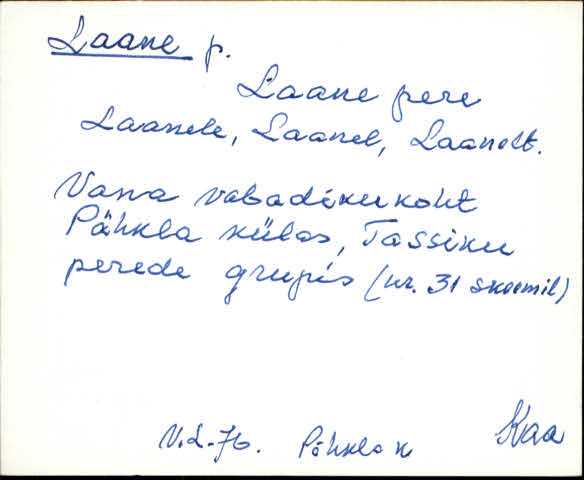 Laane p.
Laane pere
Laanele, Laanel, Laanelt.
Vana vabadikukoht
Pähkla külas, Tassiku
perede grupis (nr. 31 skeemil)
V.L.-76. Pähkla k Kaa